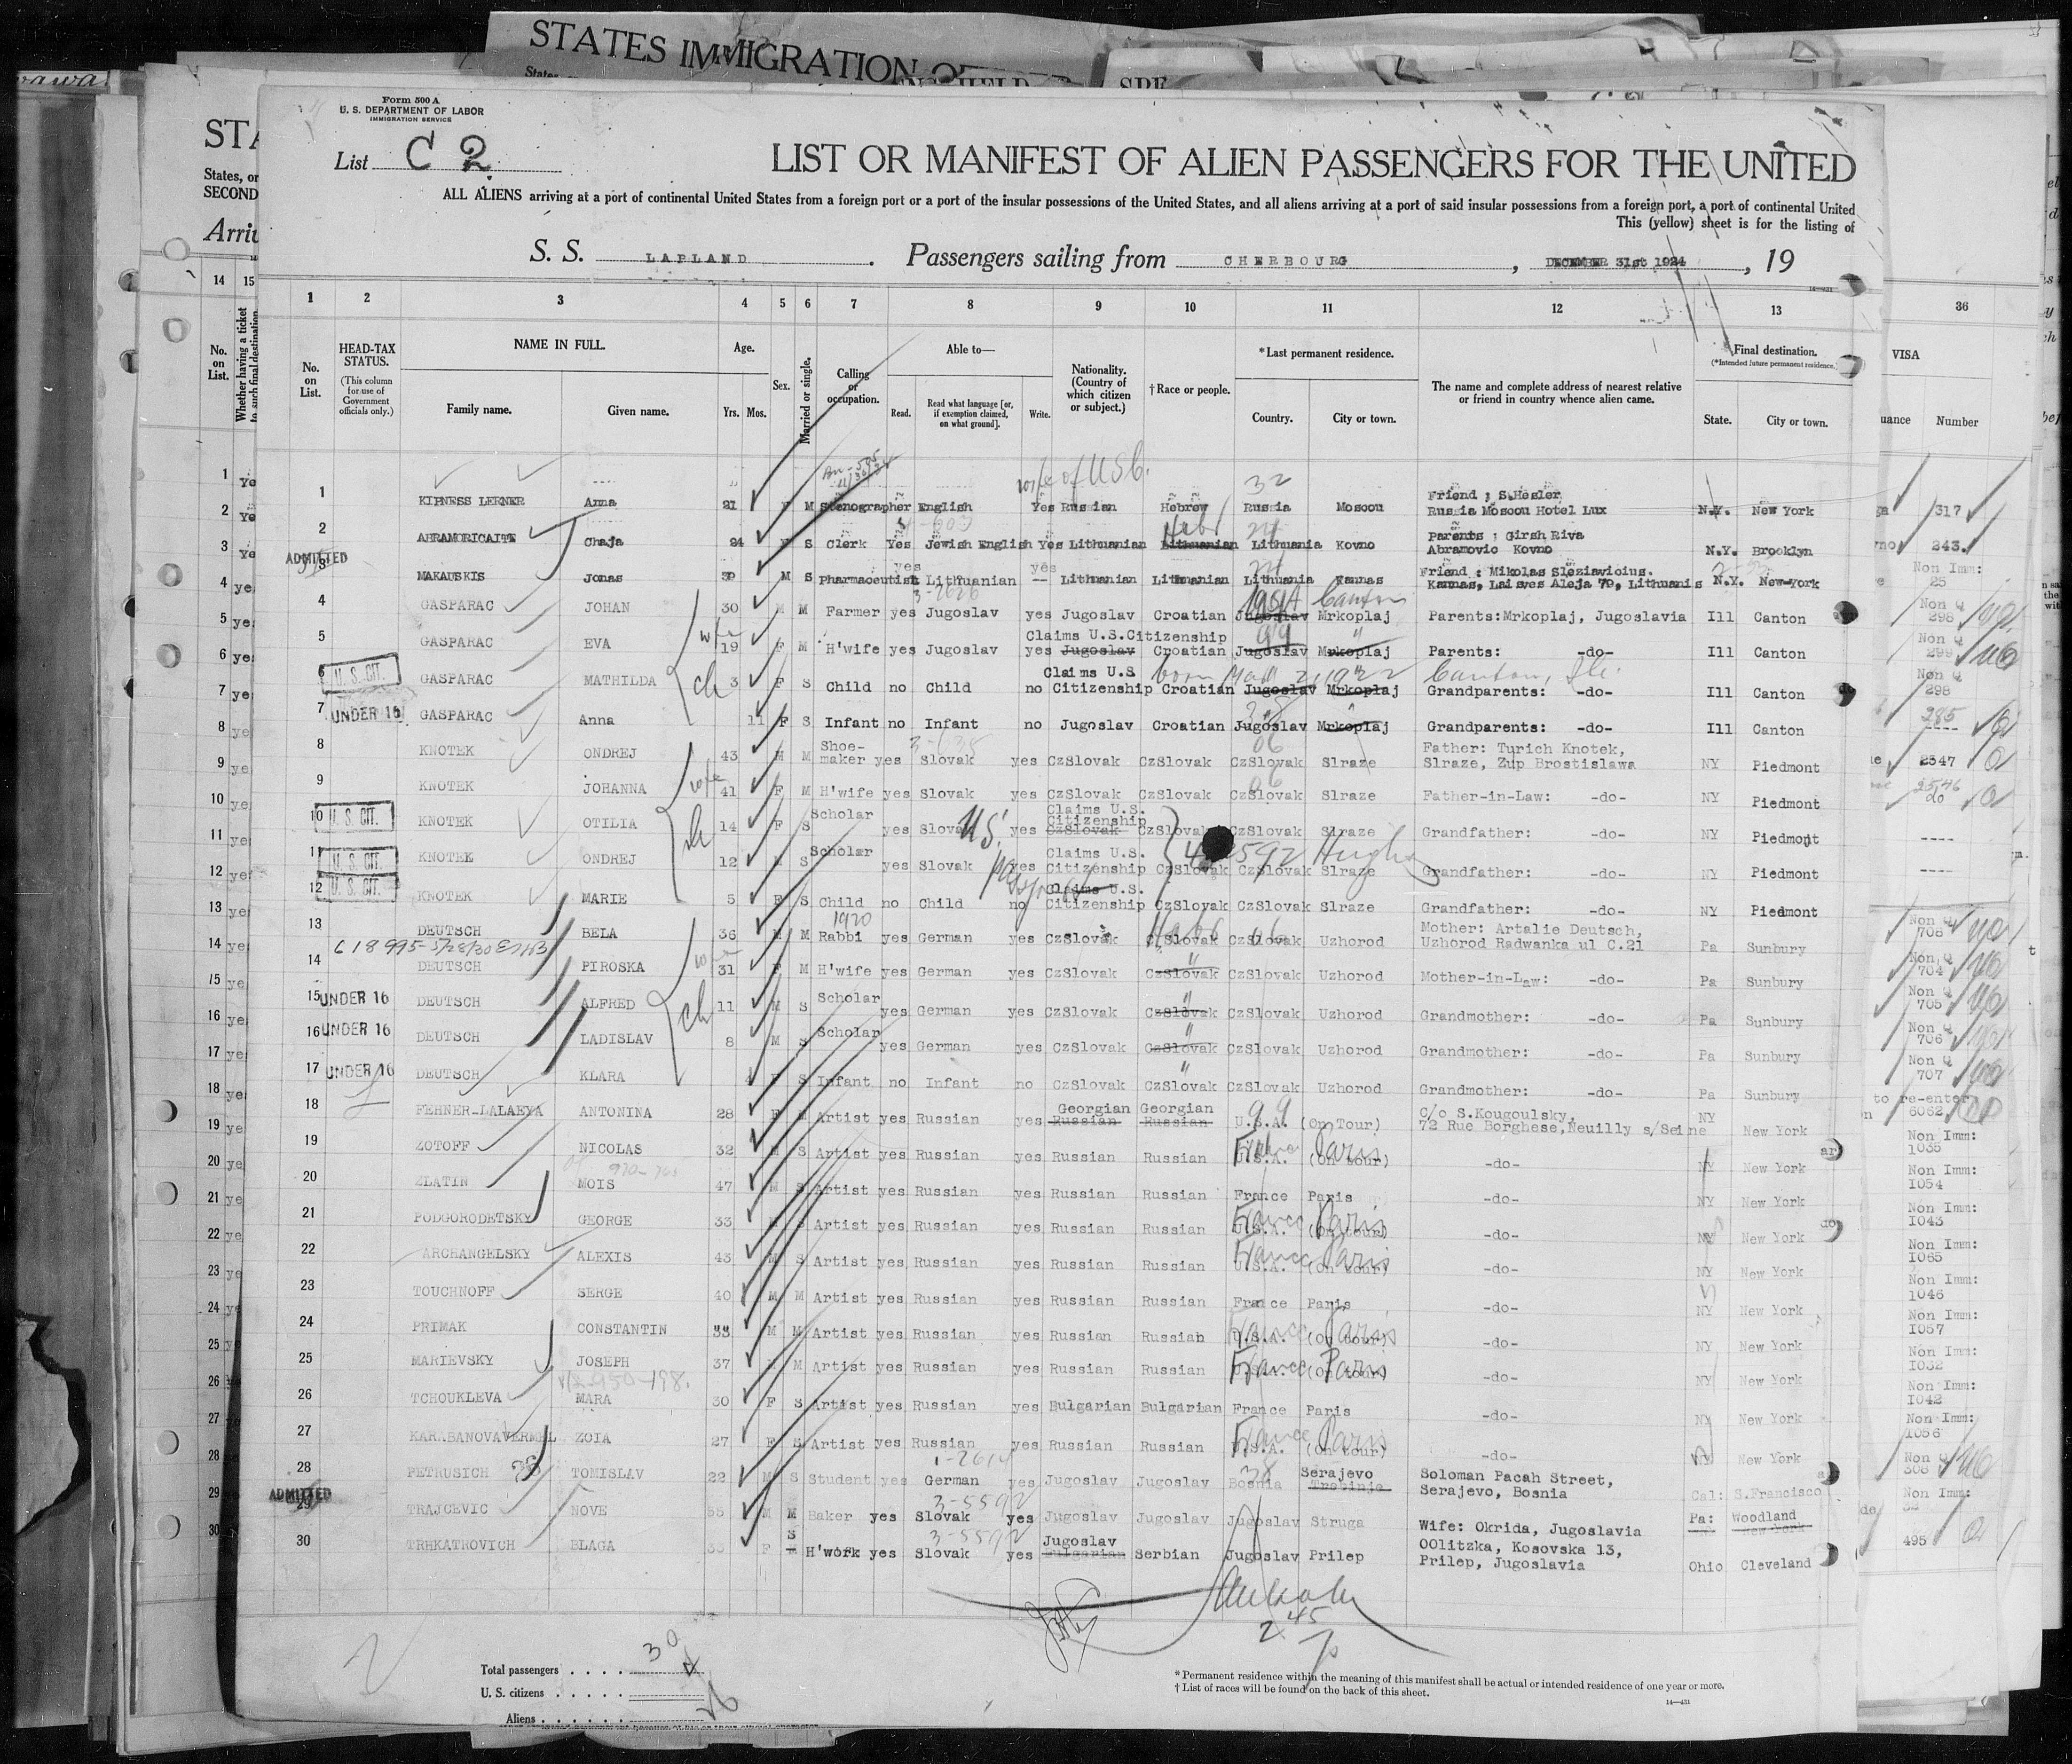 STATES IMMIGRATION
Form 500 A
U. S. DEPARTMENT OF LABOR
IMMIGRATION SERVICE
List C 2
LIST OR MANIFEST OF ALIEN PASSENGERS FOR THE UNITED
ALL ALIENS arriving at a port of continental United States from a foreign port or a port of the insular possessions of the United States, and all aliens arriving at a port of said insular possessions from a foreign port, a port of continental United
This (yellow) sheet is for the listing of
S. S. LAPLAND. Passengers sailing from CHERBOURG, DECEMBER 31st 1924, 19
1 2 3 4 5 6 7 8 9 10 11 12 13
No. on List.
HEAD-TAX STATUS.
(This column for use of Government officials only.)
NAME IN FULL.
Family name. Given name.
Age.
Yrs. Mos.
Sex.
Married or single.
Calling or occupation.
Able to—
Read. Read what language [or, if exemption claimed, on what ground]. Write.
Nationality. (Country of which citizen or subject.)
†Race or people.
*Last permanent residence.
Country. City or town.
The name and complete address of nearest relative or friend in country whence alien came.
Final destination.
(*Intended future permanent residence.)
State. City or town.
VISA
Number
36
wife of USC.
1 KIPNESS LERNER Anna 21 F M Stenographer English Yes Russian Hebrew Russia Moscou Friend ; S.Hesler Russia Moscou Hotel Lux N.Y. New York 317
2 ABRAMORICAITE Chaja 24 F S Clerk Yes Jewish English Yes Lithuanian Lithuanian Hebr Lithuania Kovno Parents ; Girsh Riva Abramovic Kovno N.Y. Brooklyn 243.
ADMITTED
3 MAKAUSKIS Jonas M S Pharmaceutist yes Lithuanian yes -- Lithuanian Lithuanian Lithuania Kaunas Friend : Mikolas Sleziavicius. Kaunas, Laisves Aleja 70, Lithuanis N.Y. New-York Non Imm: 25
4 GASPARAC JOHAN 30 M M Farmer yes Jugoslav yes Jugoslav Croatian Jugoslav Mrkoplaj Canton Parents:Mrkoplaj, Jugoslavia Ill Canton Non Q 298
5 GASPARAC EVA wfe 19 F M H'wife yes Jugoslav yes Claims U.S.Citizenship Jugoslav Croatian Jugoslav Mrkoplaj Parents: -do- Ill Canton Non Q 299
6 U. S. CIT. GASPARAC MATHILDA ch 3 F S Child no Child no Claims U.S Citizenship Croatian Jugoslav Mrkoplaj Grandparents: -do- Ill Canton Non Q 298
7 UNDER 16 GASPARAC Anna 11 F S Infant no Infant no Jugoslav Croatian Jugoslav Mrkoplaj Grandparents: -do- Ill Canton 285
8 KNOTEK ONDREJ 43 M M Shoe-maker yes Slovak yes CzSlovak CzSlovak CzSlovak Slraze Father: Turich Knotek, Slraze, Zup Brostislawa NY Piedmont 2547
9 KNOTEK JOHANNA wfe 41 F M H'wife yes Slovak yes CzSlovak CzSlovak CzSlovak Slraze Father-in-Law: -do- NY Piedmont 2546 do
10 U. S. CIT. KNOTEK OTILIA ch 14 F S Scholar yes Slovak yes Claims U.S. Citizenship CzSlovak CzSlovak CzSlovak Slraze Grandfather: -do- NY Piedmont ----
11 U. S. CIT. KNOTEK ONDREJ 12 M S Scholar yes Slovak yes Claims U.S. Citizenship CzSlovak CzSlovak Slraze Grandfather: -do- NY Piedmont ----
12 U. S. CIT. KNOTEK MARIE 5 F S Child no Child no Claims U.S. Citizenship CzSlovak CzSlovak Slraze Grandfather: -do- NY Piedmont
13 DEUTSCH BELA 36 M M Rabbi yes German yes CzSlovak CzSlovak CzSlovak Uzhorod Mother: Artalie Deutsch, Uzhorod Radwanka ul C.21 Pa Sunbury Non Q 708
14 DEUTSCH PIROSKA 31 F M H'wife yes German yes CzSlovak CzSlovak CzSlovak Uzhorod Mother-in-Law: -do- Pa Sunbury Non Q 704
15 UNDER 16 DEUTSCH ALFRED ch 11 M S Scholar yes German yes CzSlovak CzSlovak CzSlovak Uzhorod Grandmother: -do- Pa Sunbury Non Q 705
16 UNDER 16 DEUTSCH LADISLAV 8 M S Scholar yes German yes CzSlovak CzSlovak CzSlovak Uzhorod Grandmother: -do- Pa Sunbury Non Q 706
17 UNDER 16 DEUTSCH KLARA F S Infant no Infant no CzSlovak CzSlovak CzSlovak Uzhorod Grandmother: -do- Pa Sunbury Non Q 707
18 FEHNER-LALAEYA ANTONINA 28 F M Artist yes Russian yes Georgian Russian Georgian Russian U.S.A. (On Tour) c/o S.Kougoulsky, 72 Rue Borghese,Neuilly s/Seine NY New York to re-enter 6062
19 ZOTOFF NICOLAS 32 M S Artist yes Russian yes Russian Russian U.S.A. (On tour) Paris -do- NY New York Non Imm: 1035
20 ZLATIN MOIS 47 M S Artist yes Russian yes Russian Russian France Paris -do- NY New York Non Imm: 1054
21 PODGORODETSKY GEORGE 33 M S Artist yes Russian yes Russian Russian U.S.A. (On tour) France Paris -do- NY New York Non Imm: 1043
22 ARCHANGELSKY ALEXIS 43 M S Artist yes Russian yes Russian Russian U.S.A. (On tour) France Paris -do- NY New York Non Imm: 1065
23 TOUCHNOFF SERGE 40 M M Artist yes Russian yes Russian Russian France Paris -do- NY New York Non Imm: 1046
24 PRIMAK CONSTANTIN 33 M M Artist yes Russian yes Russian Russian U.S.A. (On tour) France Paris -do- NY New York Non Imm: 1057
25 MARIEVSKY JOSEPH 37 M M Artist yes Russian yes Russian Russian U.S.A. (On tour) France Paris -do- NY New York Non Imm: 1032
26 TCHOUKLEVA MARA 30 F S Artist yes Russian yes Bulgarian Bulgarian France Paris -do- NY New York Non Imm: 1042
27 KARABANOVAVERMEL ZOIA 27 F S Artist yes Russian yes Russian Russian U.S.A. (On tour) France Paris -do- NY New York Non Imm: 1056
28 PETRUSICH TOMISLAV 22 M S Student yes German yes Jugoslav Jugoslav Bosnia Serajevo Trebinje Soloman Pacah Street, Serajevo, Bosnia Cal: S.Francisco Non Q 308
ADMITTED
29 TRAJCEVIC NOVE 55 M M Baker yes Slovak yes Jugoslav Jugoslav Jugoslav Struga Wife: Okrida, Jugoslavia Pa: Woodland New York Non Imm:
30 TRHKATROVICH BLAGA F S H'work yes Slovak yes Jugoslav Bulgarian Serbian Jugoslav Prilep OOlitzka, Kosovska 13, Prilep, Jugoslavia Ohio Cleveland 495
Total passengers . . . . 30
U. S. citizens . . . . .
Aliens . . . . . .
* Permanent residence within the meaning of this manifest shall be actual or intended residence of one year or more.
† List of races will be found on the back of this sheet.
14—431